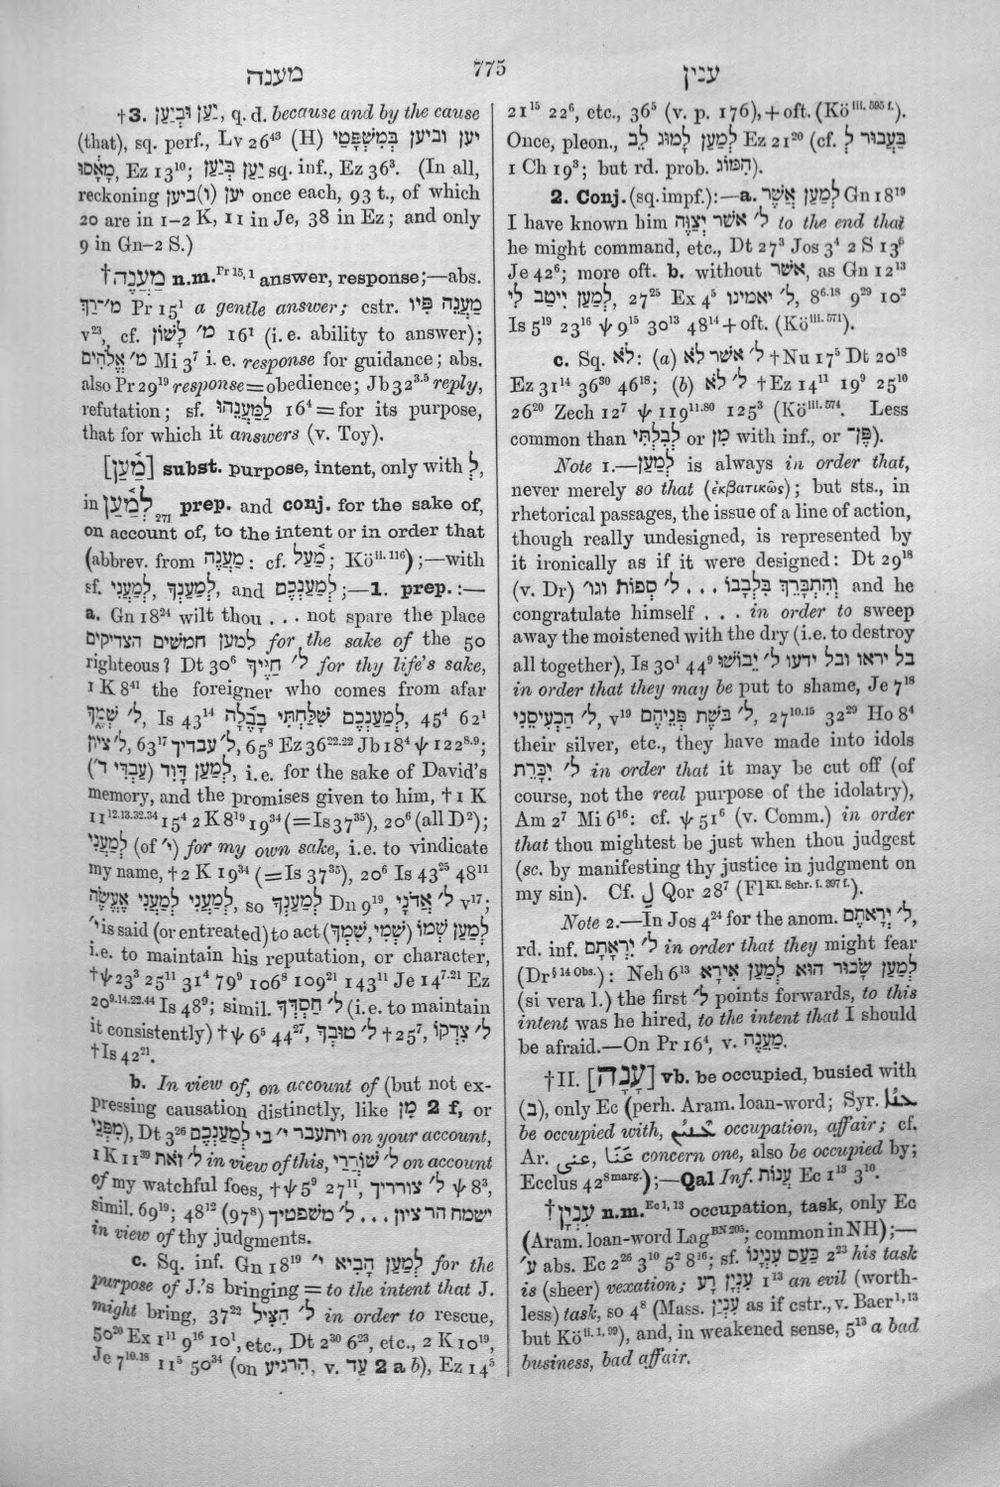 מענה
775
ענין
†3. יַעַן וּבְיַעַן, q. d. because and by the cause
(that), sq. perf., Lv 26⁴³ (H) יען וביען בְּמִשְׁפָּטַי
מָאָסוּ, Ez 13¹⁰; יַעַן בְּיַעַן sq. inf., Ez 36³. (In all,
reckoning יען (ו)ביען once each, 93 t., of which
20 are in 1–2 K, 11 in Je, 38 in Ez; and only
9 in Gn–2 S.)
†מַעֲנֶה n.m. Pr 15, 1 answer, response;—abs.
מ׳־רַךְ Pr 15¹ a gentle answer; cstr. מַעֲנֵה פִּיו
v²³, cf. מ׳ לָשׁוֹן 16¹ (i. e. ability to answer);
מ׳ אֱלֹהִים Mi 3⁷ i. e. response for guidance; abs.
also Pr 29¹⁹ response=obedience; Jb 32³·⁵ reply,
refutation; sf. לַמַּעֲנֵהוּ 16⁴=for its purpose,
that for which it answers (v. Toy).
[מַ֫עַן] subst. purpose, intent, only with לְ,
in לְמַ֫עַן 271 prep. and conj. for the sake of,
on account of, to the intent or in order that
(abbrev. from מַעֲנֶה: cf. מַ֫עַל; Kö ii. 116);—with
sf. לְמַעֲנִי, לְמַעַנְךָ, and לְמַעַנְכֶם;—1. prep.:—
a. Gn 18²⁴ wilt thou . . . not spare the place
למען חמשים הצדיקים for the sake of the 50
righteous? Dt 30⁶ ל׳ חַיֶּיךָ for thy life's sake,
1 K 8⁴¹ the foreigner who comes from afar
ל׳ שְׁמֶךָ, Is 43¹⁴ לְמַעַנְכֶם שִׁלַּחְתִּי בָבֶלָה, 45⁴ 62¹
ל׳ ציון, 63¹⁷ ל׳ עבדיך, 65⁸ Ez 36²²·²² Jb 18⁴ ψ 122⁸·⁹;
לְמַעַן דָּוִד (עַבְדִּי ד׳), i.e. for the sake of David's
memory, and the promises given to him, †1 K
11¹²·¹³·³²·³⁴ 15⁴ 2 K 8¹⁹ 19³⁴ (=Is 37³⁵), 20⁶ (all D²);
לְמַעֲנִי (of י׳) for my own sake, i.e. to vindicate
my name, †2 K 19³⁴ (=Is 37³⁵), 20⁶ Is 43²⁵ 48¹¹
לְמַעֲנִי לְמַעֲנִי אֶעֱשֶׂה, so לְמַעַנְךָ Dn 9¹⁹, ל׳ אֲדֹנָי v¹⁷;
י׳ is said (or entreated) to act לְמַעַן שְׁמוֹ (שְׁמִי, שִׁמְךָ)
i.e. to maintain his reputation, or character,
†ψ 23³ 25¹¹ 31⁴ 79⁹ 106⁸ 109²¹ 143¹¹ Je 14⁷·²¹ Ez
20⁹·¹⁴·²²·⁴⁴ Is 48⁹; simil. ל׳ חַסְדֶּךָ (i.e. to maintain
it consistently) †ψ 6⁵ 44²⁷, ל׳ טוּבְךָ †25⁷, ל׳ צִדְקוֹ
†Is 42²¹.
b. In view of, on account of (but not ex-
pressing causation distinctly, like מִן 2 f, or
מִפְּנֵי), Dt 3²⁶ ויתעבר י׳ בי לְמַעַנְכֶם on your account,
1 K 11³⁹ ל׳ זאת in view of this, ל׳ שׁוֹרְרַי on account
of my watchful foes, †ψ 5⁹ 27¹¹, ל׳ צורריך ψ 8³,
simil. 69¹⁹; 48¹² (97⁸) ישמח הר ציון . . . ל׳ משפטיך
in view of thy judgments.
c. Sq. inf. Gn 18¹⁹ לְמַעַן הָבִיא י׳ for the
purpose of J.'s bringing=to the intent that J.
might bring, 37²² ל׳ הַצִּיל in order to rescue,
50²⁰ Ex 1¹¹ 9¹⁶ 10¹, etc., Dt 2³⁰ 6²³, etc., 2 K 10¹⁹,
Je 7¹⁰·¹⁸ 11⁵ 50³⁴ (on הִרְגִּיעַ, v. עַד 2 a b), Ez 14⁵
21¹⁵ 22⁶, etc., 36⁵ (v. p. 176), + oft. (Kö iii. 595 f.).
Once, pleon., לְמַעַן לָמוּג לֵב Ez 21²⁰ (cf. בַּעֲבוּר לְ
1 Ch 19³; but rd. prob. הִמּוֹג).
2. Conj. (sq. impf.):—a. לְמַעַן אֲשֶׁר Gn 18¹⁹
I have known him ל׳ אשר יְצַוֶּה to the end that
he might command, etc., Dt 27³ Jos 3⁴ 2 S 13⁵
Je 42⁶; more oft. b. without אשר, as Gn 12¹³
לְמַעַן יִיטַב לִי, 27²⁵ Ex 4⁵ ל׳ יאמינו, 8⁶·¹⁸ 9²⁹ 10²
Is 5¹⁹ 23¹⁶ ψ 9¹⁵ 30¹³ 48¹⁴ + oft. (Kö iii. 571).
c. Sq. לֹא: (a) ל׳ אשר לֹא †Nu 17⁵ Dt 20¹⁸
Ez 31¹⁴ 36³⁰ 46¹⁸; (b) ל׳ לֹא †Ez 14¹¹ 19⁹ 25¹⁰
26²⁰ Zech 12⁷ ψ 119¹¹·⁸⁰ 125³ (Kö iii. 574. Less
common than לְבִלְתִּי or מִן with inf., or פֶּן־).
Note 1.—לְמַעַן is always in order that,
never merely so that (ἐκβατικῶς); but sts., in
rhetorical passages, the issue of a line of action,
though really undesigned, is represented by
it ironically as if it were designed: Dt 29¹⁸
(v. Dr) וְהִתְבָּרֵךְ בִּלְבָבוֹ . . . ל׳ סְפוֹת וגו׳ and he
congratulate himself . . . in order to sweep
away the moistened with the dry (i.e. to destroy
all together), Is 30¹ 44⁹ בל יראו ובל ידעו ל׳ יֵבוֹשׁוּ
in order that they may be put to shame, Je 7¹⁸
ל׳ הַכְעִיסֵנִי, v¹⁹ ל׳ בֹּשֶׁת פְּנֵיהֶם, 27¹⁰·¹⁵ 32²⁹ Ho 8⁴
their silver, etc., they have made into idols
ל׳ יִכָּרֵת in order that it may be cut off (of
course, not the real purpose of the idolatry),
Am 2⁷ Mi 6¹⁶: cf. ψ 51⁶ (v. Comm.) in order
that thou mightest be just when thou judgest
(sc. by manifesting thy justice in judgment on
my sin). Cf. لِ Qor 28⁷ (Fl Kl. Schr. i. 397 f.).
Note 2.—In Jos 4²⁴ for the anom. ל׳ יְרָאתֶם,
rd. inf. ל׳ יִרְאָתָם in order that they might fear
(Dr § 14 Obs.): Neh 6¹³ לְמַעַן שָׂכוּר הוּא לְמַעַן אִירָא
(si vera l.) the first ל׳ points forwards, to this
intent was he hired, to the intent that I should
be afraid.—On Pr 16⁴, v. מַעֲנֶה.
†II. [עָנָה] vb. be occupied, busied with
(בְּ), only Ec (perh. Aram. loan-word; Syr. ܥܢܳܐ
be occupied with, occupation, affair; cf.
Ar. عنى, عَنَا concern one, also be occupied by;
Ecclus 42⁸ marg.);—Qal Inf. עֲנוֹת Ec 1¹³ 3¹⁰.
†עִנְיָן n.m. Ec 1, 13 occupation, task, only Ec
(Aram. loan-word Lag BN 205; common in NH);—
ע׳ abs. Ec 2²⁶ 3¹⁰ 5² 8¹⁶; sf. כַּעַס עִנְיָנוֹ 2²³ his task
is (sheer) vexation; עִנְיַן רָע 1¹³ an evil (worth-
less) task, so 4⁸ (Mass. עִנְיַן as if cstr., v. Baer 1, 13
but Kö ii. 1, 99), and, in weakened sense, 5¹³ a bad
business, bad affair.